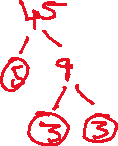 45
5 9
3 3